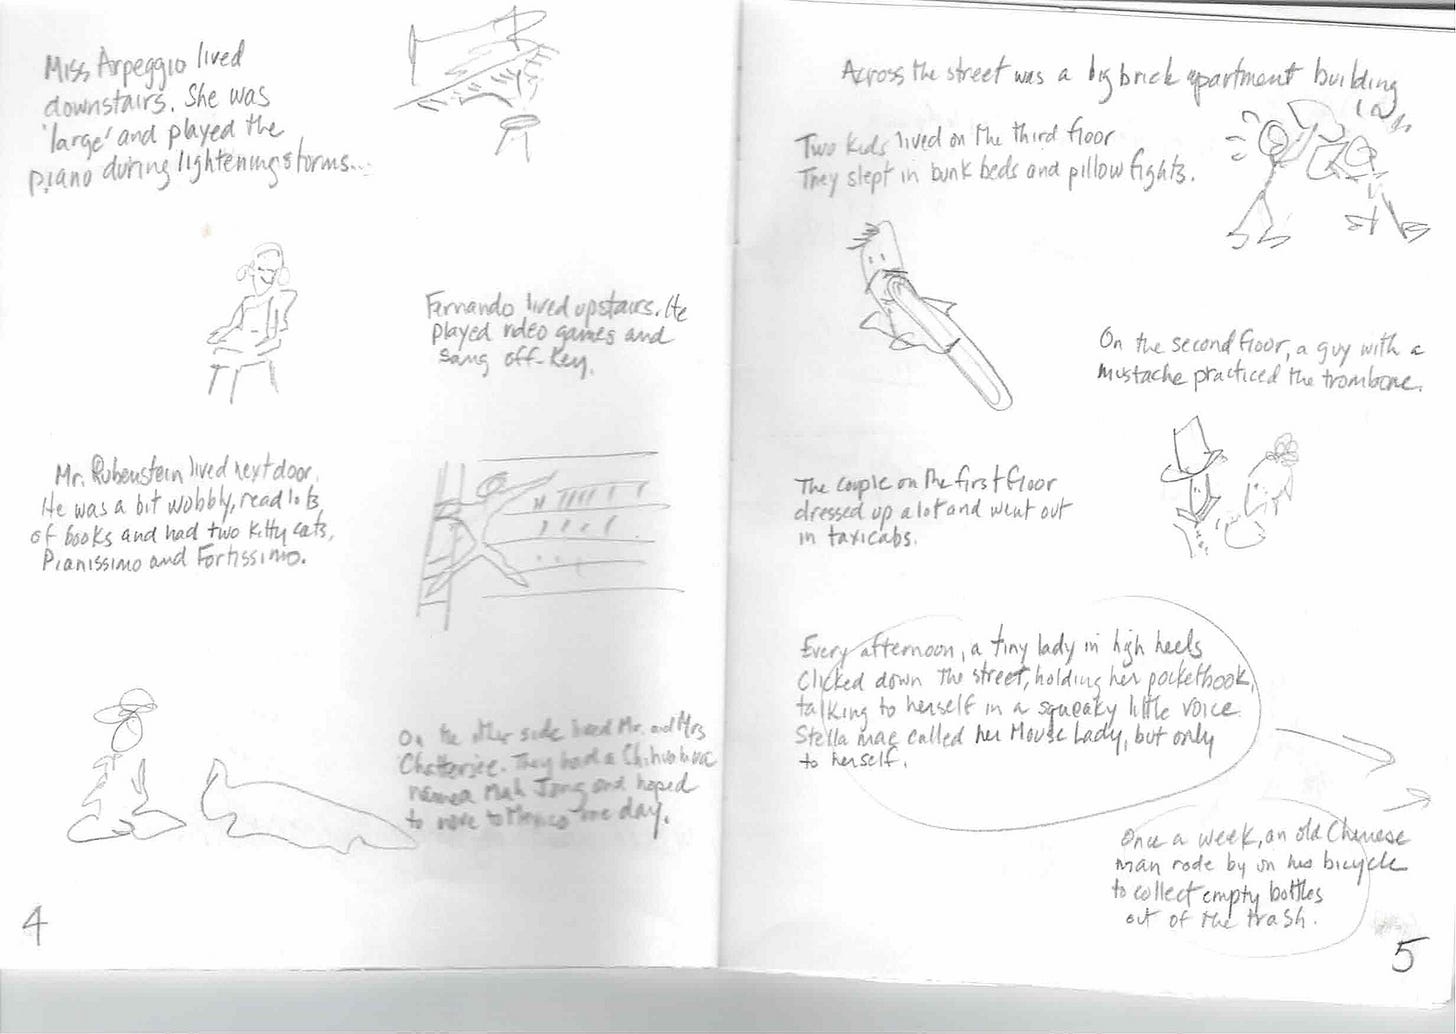 Miss Arpeggio lived
downstairs. She was
'large' and played the
piano during lightening storms...
Fernando lived upstairs. He
played video games and
sang off-key.
Mr. Rubenstein lived next door.
He was a bit wobbly, read lots
of books and had two kitty cats,
Pianissimo and Fortissimo.
On the other side lived Mr. and Mrs
Chatterjee. They had a Chihuahua
named Mah Jong and hoped
to move to Mexico one day.
4
Across the street was a big brick apartment building
Two kids lived on the third floor
They slept in bunk beds and pillow fights.
On the second floor, a guy with a
mustache practiced the trombone.
The couple on the first floor
dressed up a lot and went out
in taxicabs.
Every afternoon, a tiny lady in high heels
clicked down the street, holding her pocketbook,
talking to herself in a squeaky little voice.
Stella Mae called her Mouse Lady, but only
to herself.
Once a week, an old Chinese
man rode by on his bicycle
to collect empty bottles
out of the trash.
5